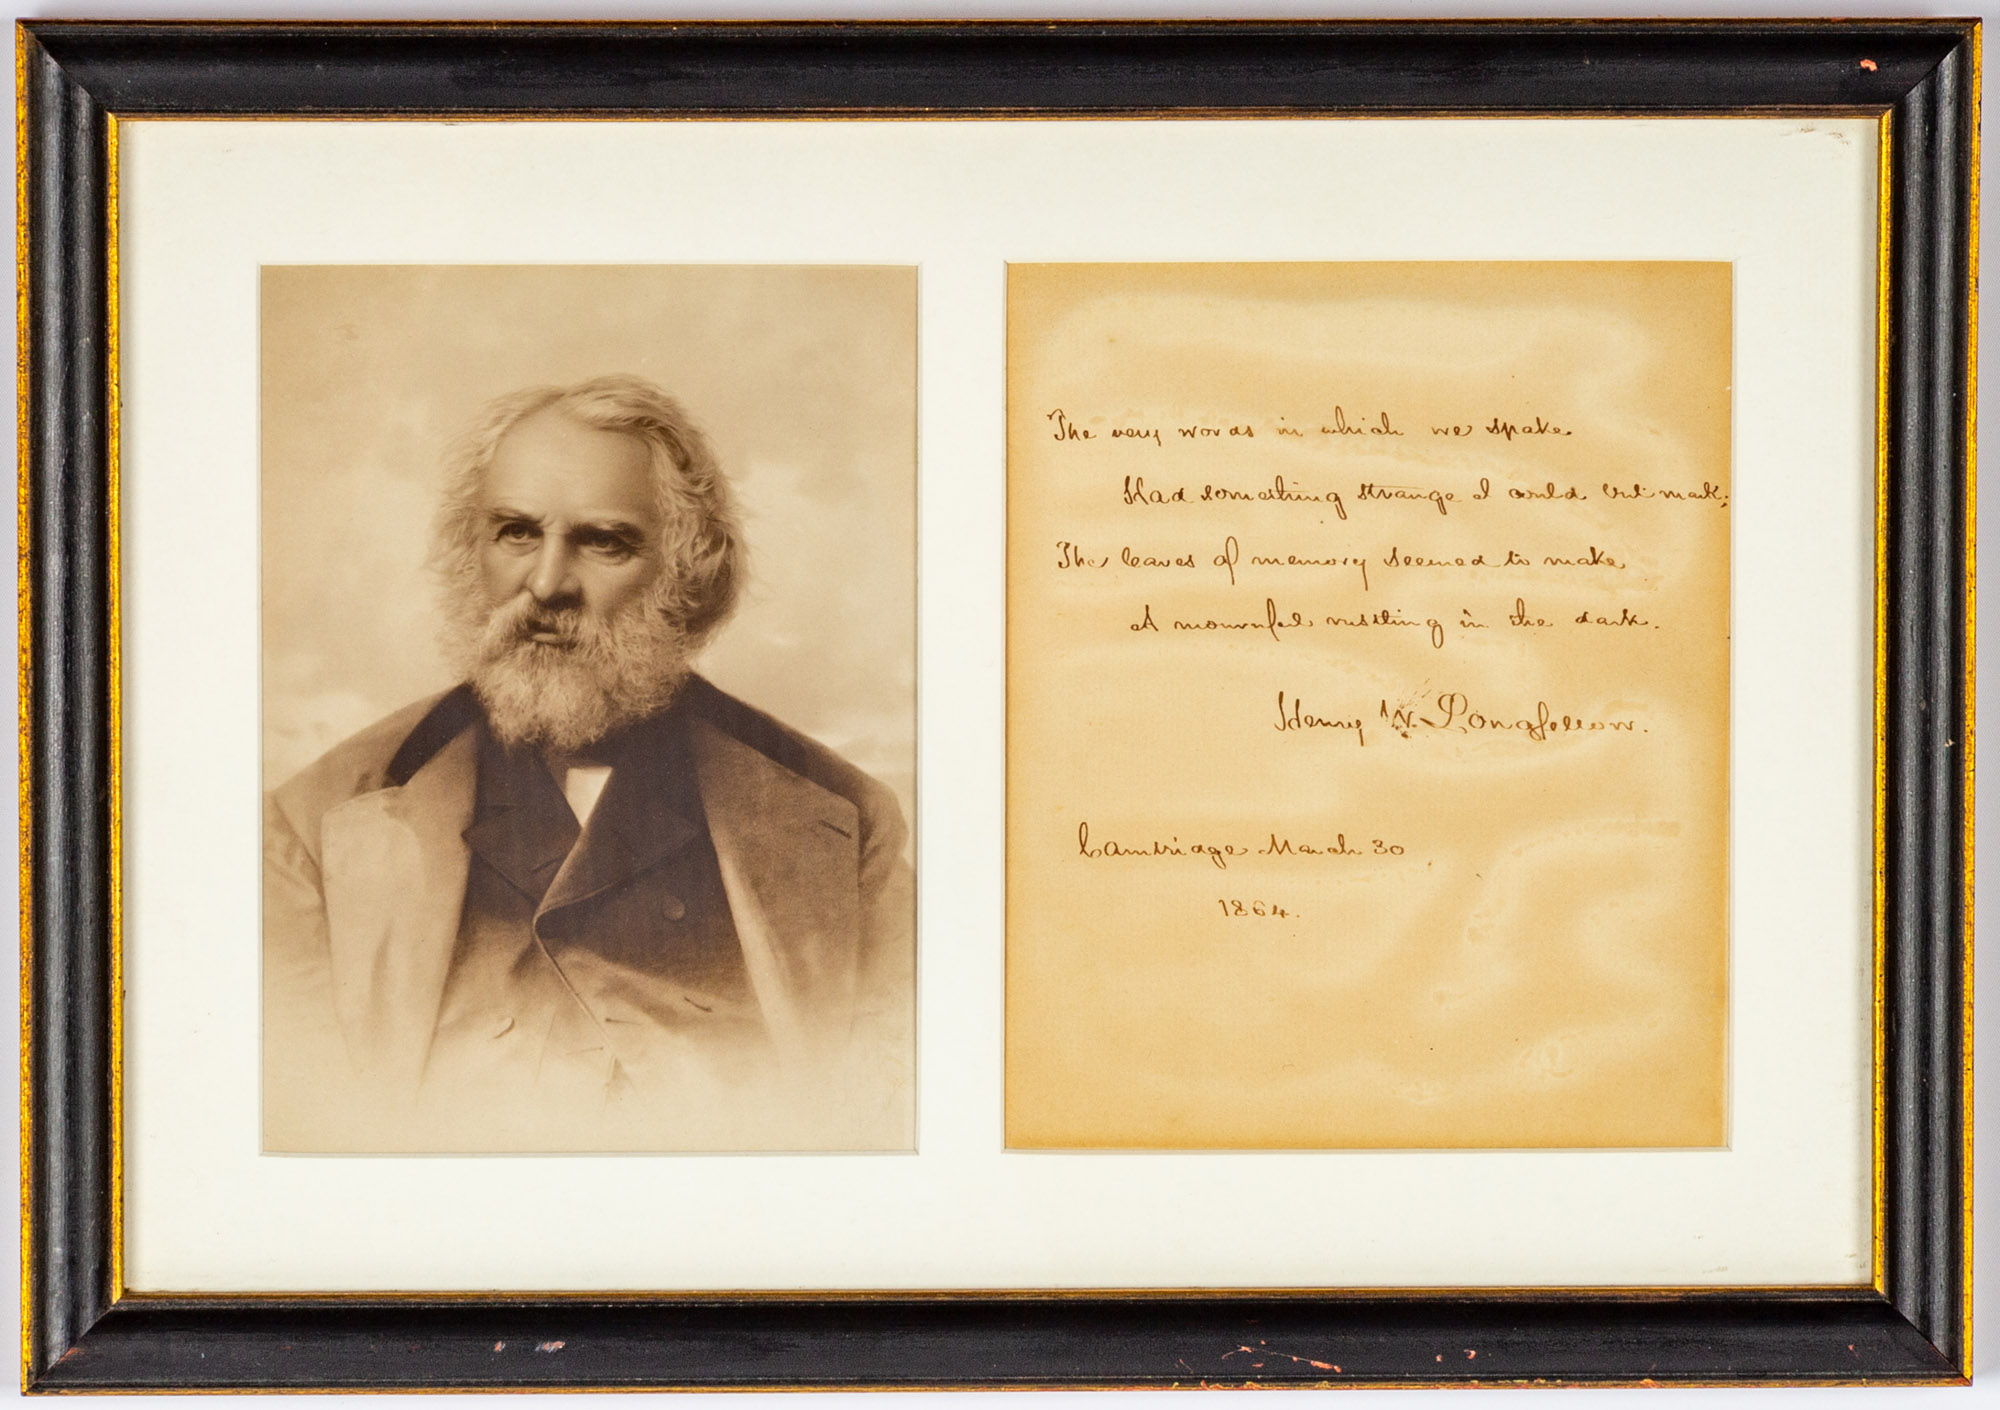 The very words in which we spake
Had something strange I could but mark;
The leaves of memory seemed to make
A mournful rustling in the dark.
Henry W. Longfellow.
Cambridge March 30
1864.